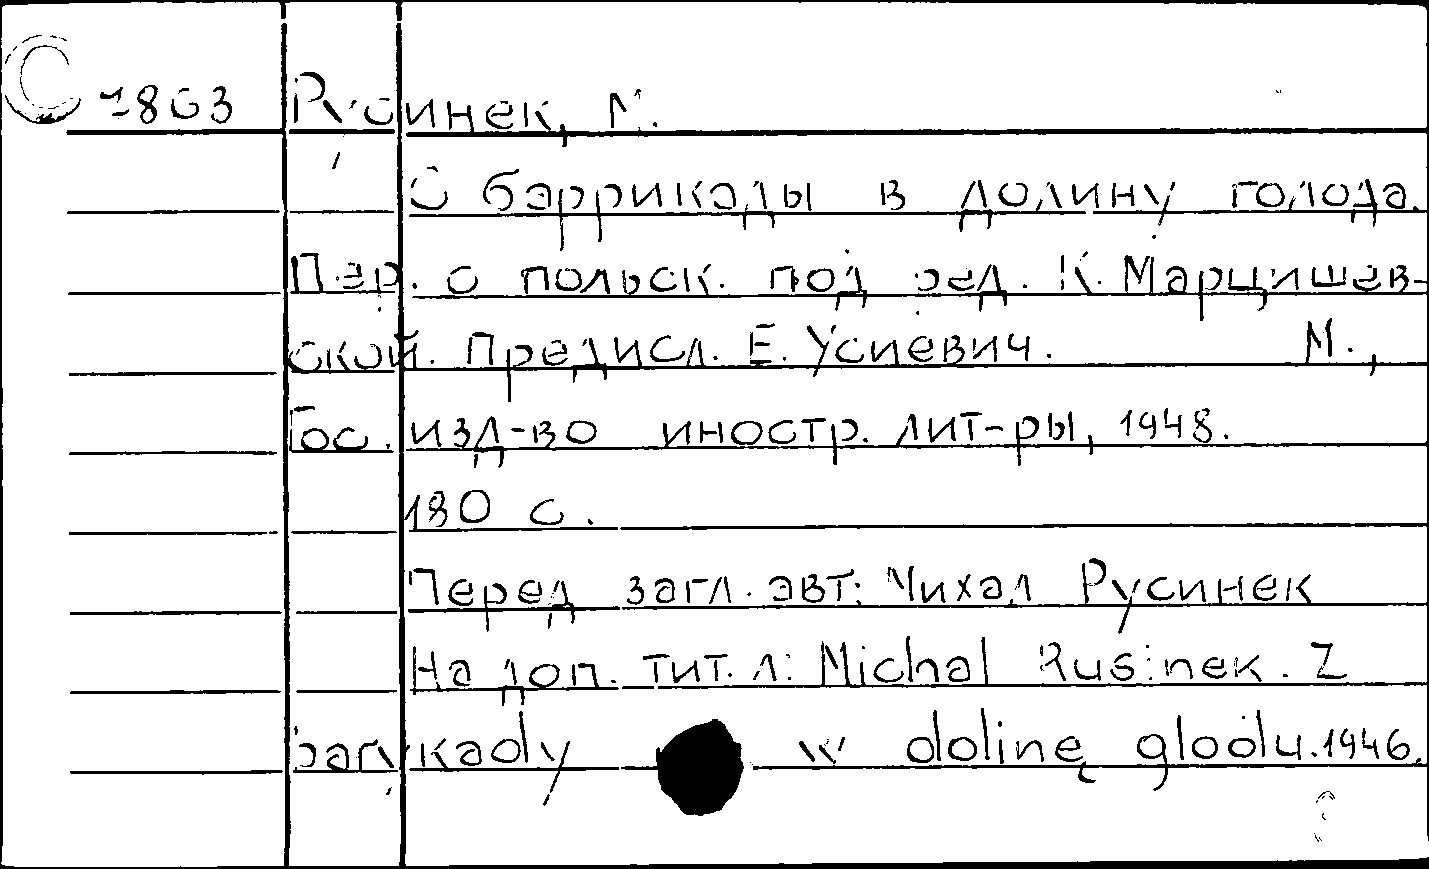 С 1863 Русинек, М.
С баррикады в долину голода.
Пер. с польск. под ред. К. Марцишев-
ской. Предисл. Е. Усиевич. М.,
Гос. изд-во иностр. лит-ры, 1948.
180 с.
Перед загл. авт: Михал Русинек
На доп. тит. л: Michal Rusinek. Z
barykady w dolinę głodu. 1946.